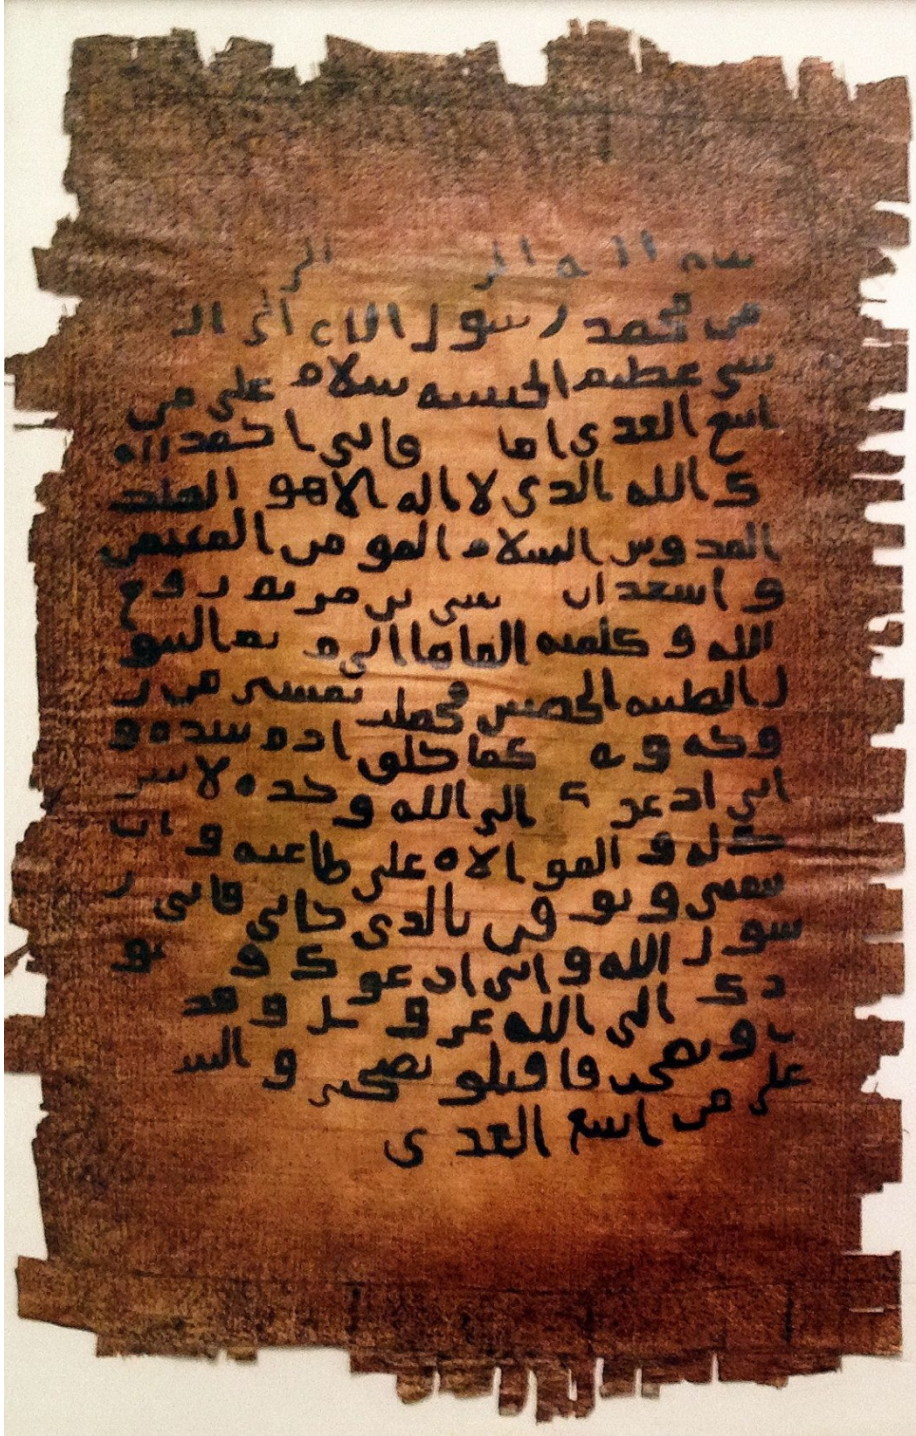 بسم الله
من محمد رسول الله الى النجا
شي عظيم الحبشه سلام على من
اتبع الهدى اما فاني احمد الي
ك الله الذي لا اله الا هو الملك
القدوس السلام المومن المهيمن
و اشهد ان عيسى بن مريم روح
الله و كلمته القاها الى مريم البتو
ل الطيبه الحصينه فحملت بعيسى من ر
وحه و كما خلق ادم بيده و
اني ادعوك الى الله وحده لا شر
يك له و الموالاه على طاعته و ان
تتبعني و توقن بالذي جاني فاني ر
سول الله و اني ادعوك و جنو
دك الى الله عز و جل و قد
و نصحت فاقبلو نصحي و السلم
على من اتبع الهدى